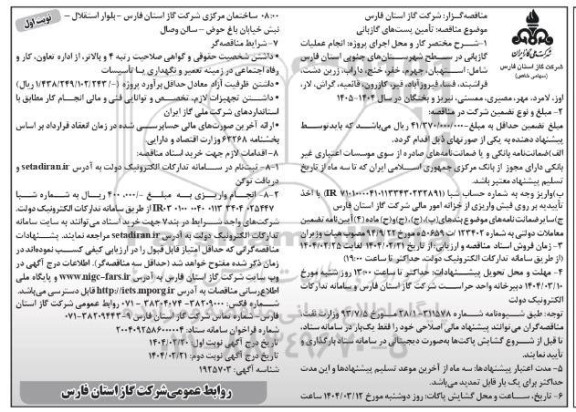 نوبت اول
شرکت ملی گاز ایران
شرکت گاز استان فارس
(سهامی خاص)
مناقصه‌گزار: شرکت گاز استان فارس
موضوع مناقصه: تأمین پست‌های گازبانی
۱-شرح مختصر کار و محل اجرای پروژه: انجام عملیات
گازبانی در سطح شهرستان‌های جنوبی استان فارس
شامل: استهبان، جهرم، خفر، خنج، داراب، زرین دشت،
فراشبند، فسا، فیروزآباد، قیر، کازرون، قائمیه، گراش، لار،
اوز، لامرد، مهر، مصیری، ممسنی، نیریز و بختگان در سال ۱۴۰۴-۱۴۰۵
۲- مبلغ و نوع تضمین شرکت در مناقصه:
مبلغ تضمین حداقل به مبلغ ۴۱/۲۷۰/۰۰۰/۰۰۰ ریال می‌باشد که باید توسط
پیشنهاد دهنده به یکی از صورت‌های ذیل اقدام گردد.
الف)ضمانت‌نامه بانکی و یا ضمانت‌نامه‌های صادره از سوی موسسات اعتباری غیر
بانکی دارای مجوز از بانک مرکزی جمهوری اسلامی ایران که تا سه ماه از تاریخ
تسلیم پیشنهاد معتبر باشد.
ب)واریز وجه به شماره حساب شبا
با اخذ
تأیید به بر روی فیش واریزی از خزانه امور مالی شرکت گاز استان فارس
ج)سایر ضمانت‌نامه‌های موضوع بندهای (پ)،(ج)،(چ)و(ح) ماده (۴) آیین‌نامه تضمین
معاملات دولتی به شماره ۱۲۳۴۰۲/ت۵۰۶۵۹ه مورخ ۹۴/۹/۲۲ مصوب هیأت وزیران
۳- زمان فروش اسناد مناقصه و ارزیابی از تاریخ ۱۴۰۴/۰۲/۲۱ لغایت ۱۴۰۴/۰۲/۲۵
(از طریق سامانه تدارکات الکترونیک دولت، حداکثر تا ساعت ۱۹:۰۰)
۴- مهلت و محل تحویل پیشنهادات: حداکثر تا ساعت ۱۳:۰۰ روز شنبه مورخ
۱۴۰۴/۰۳/۱۰ دبیرخانه واحد حراست شرکت گاز استان فارس و سامانه تدارکات
الکترونیک دولت
توجه: طبق شیوه‌نامه شماره ۲۸/۱۰۲۱۱۵۷۸ مورخ ۹۳/۷/۵ وزارت نفت:
مناقصه‌گران می‌توانند پیشنهاد مالی اصلاحی خود را فقط یک‌بار در سامانه ستاد،
تا قبل از شروع گشایش پاکت‌ها به‌صورت دیجیتالی در سامانه ستاد بارگذاری و
تأیید نمایند.
۵- مدت اعتبار پیشنهادها: سه ماه از آخرین موعد تسلیم پیشنهادها و این مدت
حداکثر برای یک بار قابل تمدید می‌باشد.
۶- تاریخ، ساعت و محل گشایش پاکات: روز دوشنبه مورخ ۱۴۰۴/۰۳/۱۲ ساعت
۰۸:۰۰ ساختمان مرکزی شرکت گاز استان فارس - بلوار استقلال -
نبش خیابان باغ حوض - سالن وصال
۷- شرایط مناقصه‌گر
• داشتن شخصیت حقوقی و گواهی صلاحیت رتبه ۴ و بالاتر، از اداره تعاون، کار و
رفاه اجتماعی در زمینه تعمیر و نگهداری یا تأسیسات
• داشتن ظرفیت آزاد معادل حداقل برآورد پروژه (-/۱/۴۳۸/۲۴۹/۱۰۲/۲۴۳ ریال)
• داشتن تجهیزات لازم، تخصص و توانایی فنی و مالی انجام کار مطابق با
استانداردهای شرکت ملی گاز ایران
• ارائه آخرین صورت‌های مالی حسابرسی شده در زمان انعقاد قرارداد بر اساس
بخشنامه ۶۲۲۶۸ وزارت اقتصاد و دارایی.
۸-اقدامات لازم جهت خرید اسناد مناقصه:
۸-۱- ثبت‌نام در سامانه تدارکات الکترونیک دولت به آدرس setadiran.ir و
دریافت توکن
۸-۲- انجام واریزی به مبلغ -/۴۰۰,۰۰۰ ریال به شماره شبا
از طریق سامانه تدارکات الکترونیک دولت.
شرکت‌های واجد شرایط در بند۷ جهت خرید اسناد می‌توانند به سایت سامانه
تدارکات الکترونیک دولت به آدرس setadiran.ir مراجعه نمایند. پیشنهادات
مناقصه‌گرانی که حداقل امتیاز قابل قبول را در ارزیابی کیفی کسب نموده‌اند در
زمان ذکر شده مفتوح خواهد شد (حداقل سه مناقصه‌گر). اطلاعات درج آگهی در
وب سایت شرکت گاز استان فارس به آدرس www.nigc-fars.ir و پایگاه ملی
اطلاع‌رسانی مناقصات به آدرس http://iets.mporg.ir قابل دسترسی می‌باشد.
شماره فکس: ۳۸۲۰۹۰۰۰-۳۸۳۰۴۰۷۴ - ۰۷۱ روابط عمومی شرکت گاز استان
فارس- شماره تماس شرکت گاز استان فارس ۹-۳۸۲۰۹۴۴۳-۰۷۱
شماره فراخوان سامانه ستاد: ۲۰۰۴۰۹۲۵۸۶۰۰۰۰۰۴
تاریخ درج آگهی نوبت اول: ۱۴۰۴/۰۲/۲۰
تاریخ درج آگهی نوبت دوم: ۱۴۰۴/۰۲/۲۱
شناسه آگهی: ۱۹۲۵۷۰۳
روابط عمومی شرکت گاز استان فارس